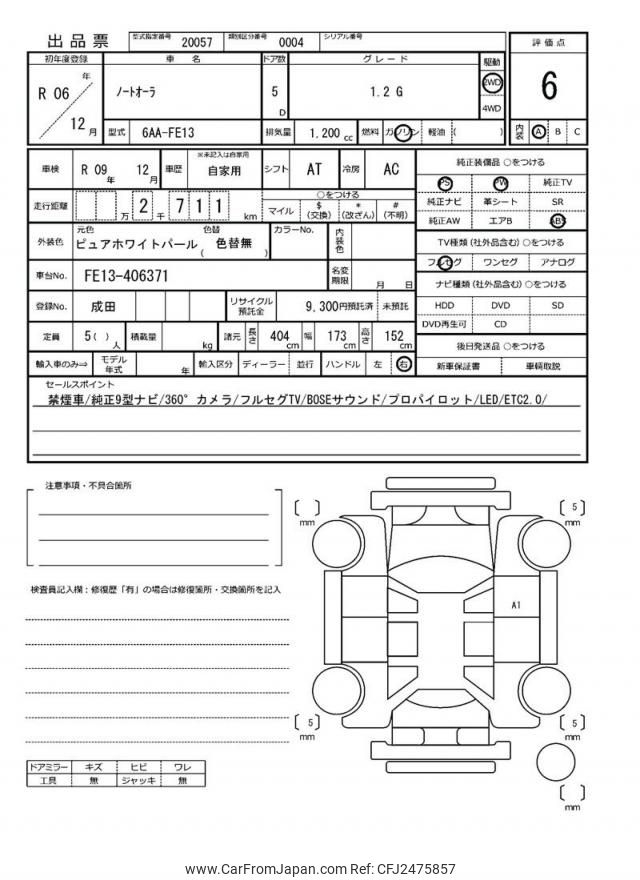 出品票
型式指定番号 20057 類別区分番号 0004 シリアル番号
初年度登録 車名 ドア数 グレード 駆動 評価点
R 06 年 12 月 ノートオーラ 5 D 1.2 G 2WD 4WD 6
型式 6AA-FE13 排気量 1,200 cc 燃料 ガソリン 軽油 ( ) 内装 A B C
車検 R 09 年 12 月 車歴 ※未記入は自家用 自家用 シフト AT 冷房 AC
走行距離 万 2 千 7 1 1 km ○をつける マイル $ (交換) * (改ざん) # (不明)
外装色 元色 ピュアホワイトパール 色替 ( 色替無 ) カラーNo. 内装色
車台No. FE13-406371 名変期限 月 日
登録No. 成田 リサイクル預託金 9,300円預託済 未預託
定員 5 ( ) 人 積載量 kg 諸元 長さ 404 cm 幅 173 cm 高さ 152 cm
輸入車のみ⇒ モデル年式 年 輸入区分 ディーラー 並行 ハンドル 左 右
純正装備品 ○をつける
PS PW 純正TV
純正ナビ 革シート SR
純正AW エアB ABS
TV種類 (社外品含む) ○をつける
フルセグ ワンセグ アナログ
ナビ種類 (社外品含む) ○をつける
HDD DVD SD
DVD再生可 CD
後日発送品 ○をつける
新車保証書 車輌取説
セールスポイント
禁煙車/純正9型ナビ/360°カメラ/フルセグTV/BOSEサウンド/プロパイロット/LED/ETC2.0/
注意事項・不具合箇所
検査員記入欄：修復歴「有」の場合は修復箇所・交換箇所を記入
ドアミラー キズ ヒビ ワレ
工具 無 ジャッキ 無
[ ] mm
[ 5 ] mm
A1
[ 5 ] mm
[ 5 ] mm
[ ] mm
www.CarFromJapan.com Ref: CFJ2475857